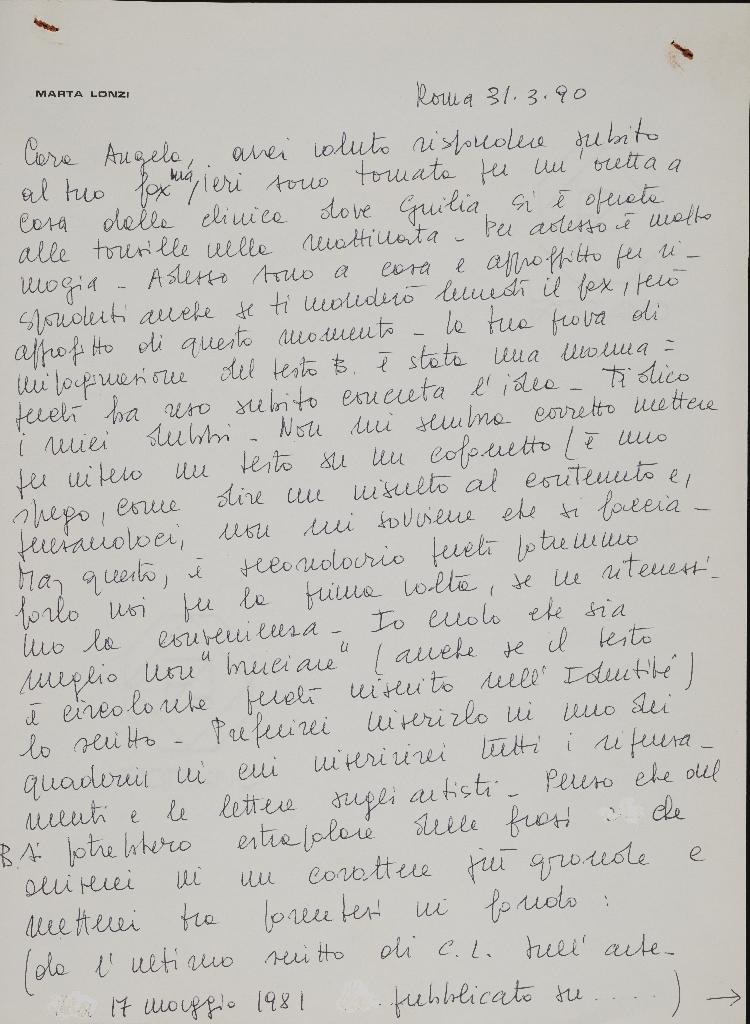 MARTA LONZI
Roma 31.3.90
Cara Angela, avrei voluto rispondere subito
al tuo fax ma, ieri sono tornata per un'oretta a
casa dalla clinica dove Giulia si è operata
alle tonsille nella mattinata - Per adesso è molto
mogia - Adesso sono a casa e approffitto per ri-
sponderti anche se ti manderò lunedì il fax, però
approfitto di questo momento - la tua prova di
impaginazione del testo B. è stata una manna =
perché ha reso subito concreta l'idea - Ti dico
i miei dubbi - Non mi sembra corretto mettere
per intero un testo su un cofanetto (è uno
spregio, come dire un insulto al contenuto e,
pensandoci, non mi sovviene che si faccia -
Ma, questo, è secondario perché potremmo
farlo noi per la prima volta, se ne ritenessi-
mo la convenienza - Io credo che sia
meglio non "bruciare" (anche se il testo
è circolante perché inserito nell'Identité)
lo scritto - Preferirei inserirlo in uno dei
quaderni in cui inserirei tutti i ripensa-
menti e le lettere sugli artisti - Penso che del
B. si potrebbero estrapolare delle frasi : che
scriverei in un carattere più grande e
metterei tra parentesi in fondo :
(da l'ultimo scritto di C.L. sull'arte-
17 maggio 1981 pubblicato su .....) →